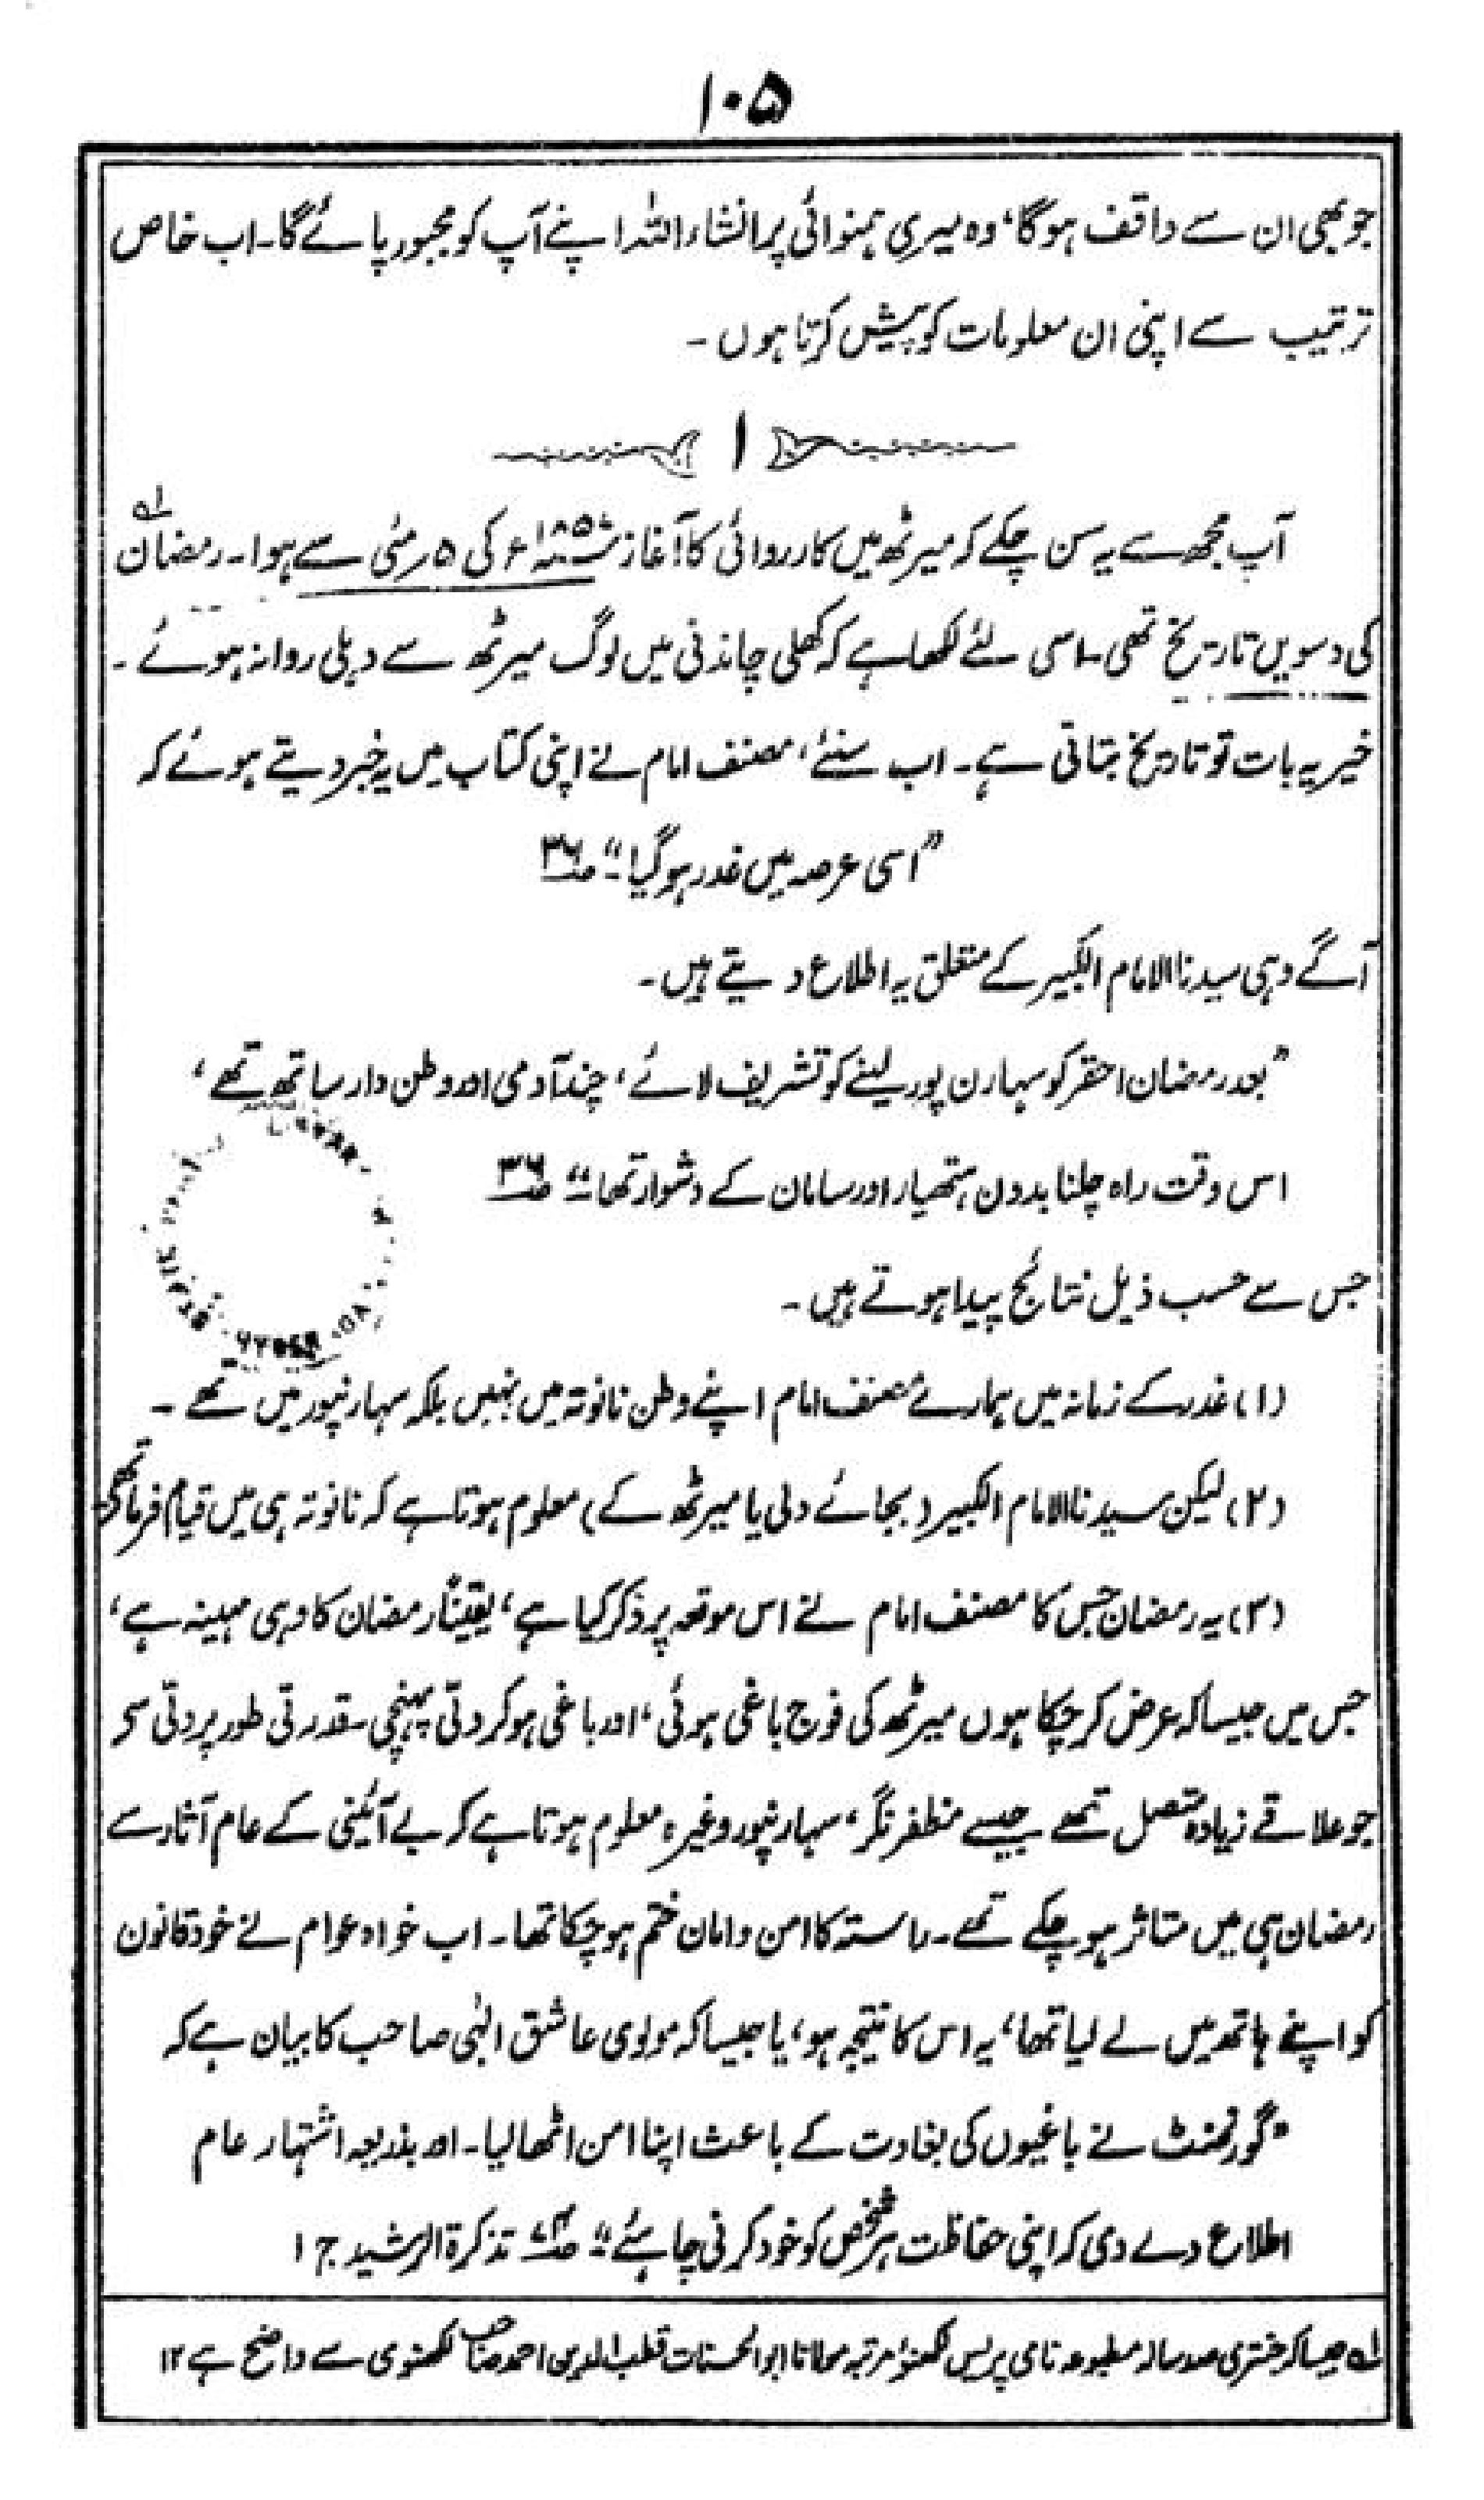 ۱۰۵
جو بھی ان سے واقف ہوگا، وہ میری ہمنوائی پر انشاء اللہ اپنے آپ کو مجبور پائے گا۔ اب خاص
ترتیب سے اپنی ان معلومات کو پیش کرتا ہوں۔
۱
آپ مجھ سے یہ سن چکے کہ میرٹھ میں کارروائی کا آغاز ۱۸۵۷ء کی ۵ر مئی سے ہوا۔ رمضان ؎۱
کی دسویں تاریخ تھی۔ اسی لئے لکھا ہے کہ کھلی چاندنی میں لوگ میرٹھ سے دہلی روانہ ہوئے۔
خیر یہ بات تو تاریخ بتاتی ہے۔ اب سنئے، مصنف امام نے اپنی کتاب میں یہ خبر دیتے ہوئے کہ
”اسی عرصہ میں غدر ہو گیا“۔ ص۳۶
آگے وہی سیدنا الامام الکبیر کے متعلق یہ اطلاع دیتے ہیں۔
”بعد رمضان احقر کو سہارن پور لینے کو تشریف لائے، چند آدمی اور وطن دار ساتھ تھے،
اس وقت راہ چلنا بدون ہتھیار اور سامان کے دشوار تھا“۔ ص۳۶
جس سے حسب ذیل نتائج پیدا ہوتے ہیں۔
(۱) غدر کے زمانہ میں ہمارے مصنف امام اپنے وطن نانوتہ میں نہیں بلکہ سہارنپور میں تھے۔
(۲) لیکن سیدنا الامام الکبیر (بجائے دلی یا میرٹھ کے) معلوم ہوتا ہے کہ نانوتہ ہی میں قیام فرما تھے
(۳) یہ رمضان جس کا مصنف امام نے اس موقعہ پر ذکر کیا ہے، یقیناً رمضان کا وہی مہینہ ہے،
جس میں جیسا کہ عرض کر چکا ہوں میرٹھ کی فوج باغی ہوئی، اور باغی ہو کر دلی پہنچی۔ قدرتی طور پر دلی سے
جو علاقے زیادہ متصل تھے جیسے مظفر نگر، سہارنپور وغیرہ معلوم ہوتا ہے کہ بے آئینی کے عام آثار سے
رمضان ہی میں متاثر ہو چکے تھے۔ راستہ کا امن و امان ختم ہو چکا تھا۔ اب خواہ عوام نے خود قانون
کو اپنے ہاتھ میں لے لیا تھا، یہ اس کا نتیجہ ہو، یا جیسا کہ مولوی عاشق الٰہی صاحب کا بیان ہے کہ
”گورنمنٹ نے باغیوں کی بغاوت کے باعث اپنا امن اٹھا لیا۔ اور بذریعہ اشتہار عام
اطلاع دے دی کہ اپنی حفاظت ہر شخص کو خود کرنی چاہئے“۔ تذکرۃ الرشید ج ۱
؎۱ جیسا کہ جنتری صد سالہ مطبوعہ نامی پریس لکھنؤ مرتبہ مولانا ابوالحسنات قطب الدین احمد صاحب لکھنوی سے واضح ہے ۱۲